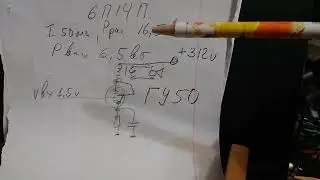 6П14П.
I 50ma, Ррас 16,
Рвых 6,5вт
+312v
Vвх 1,5v
ГУ50